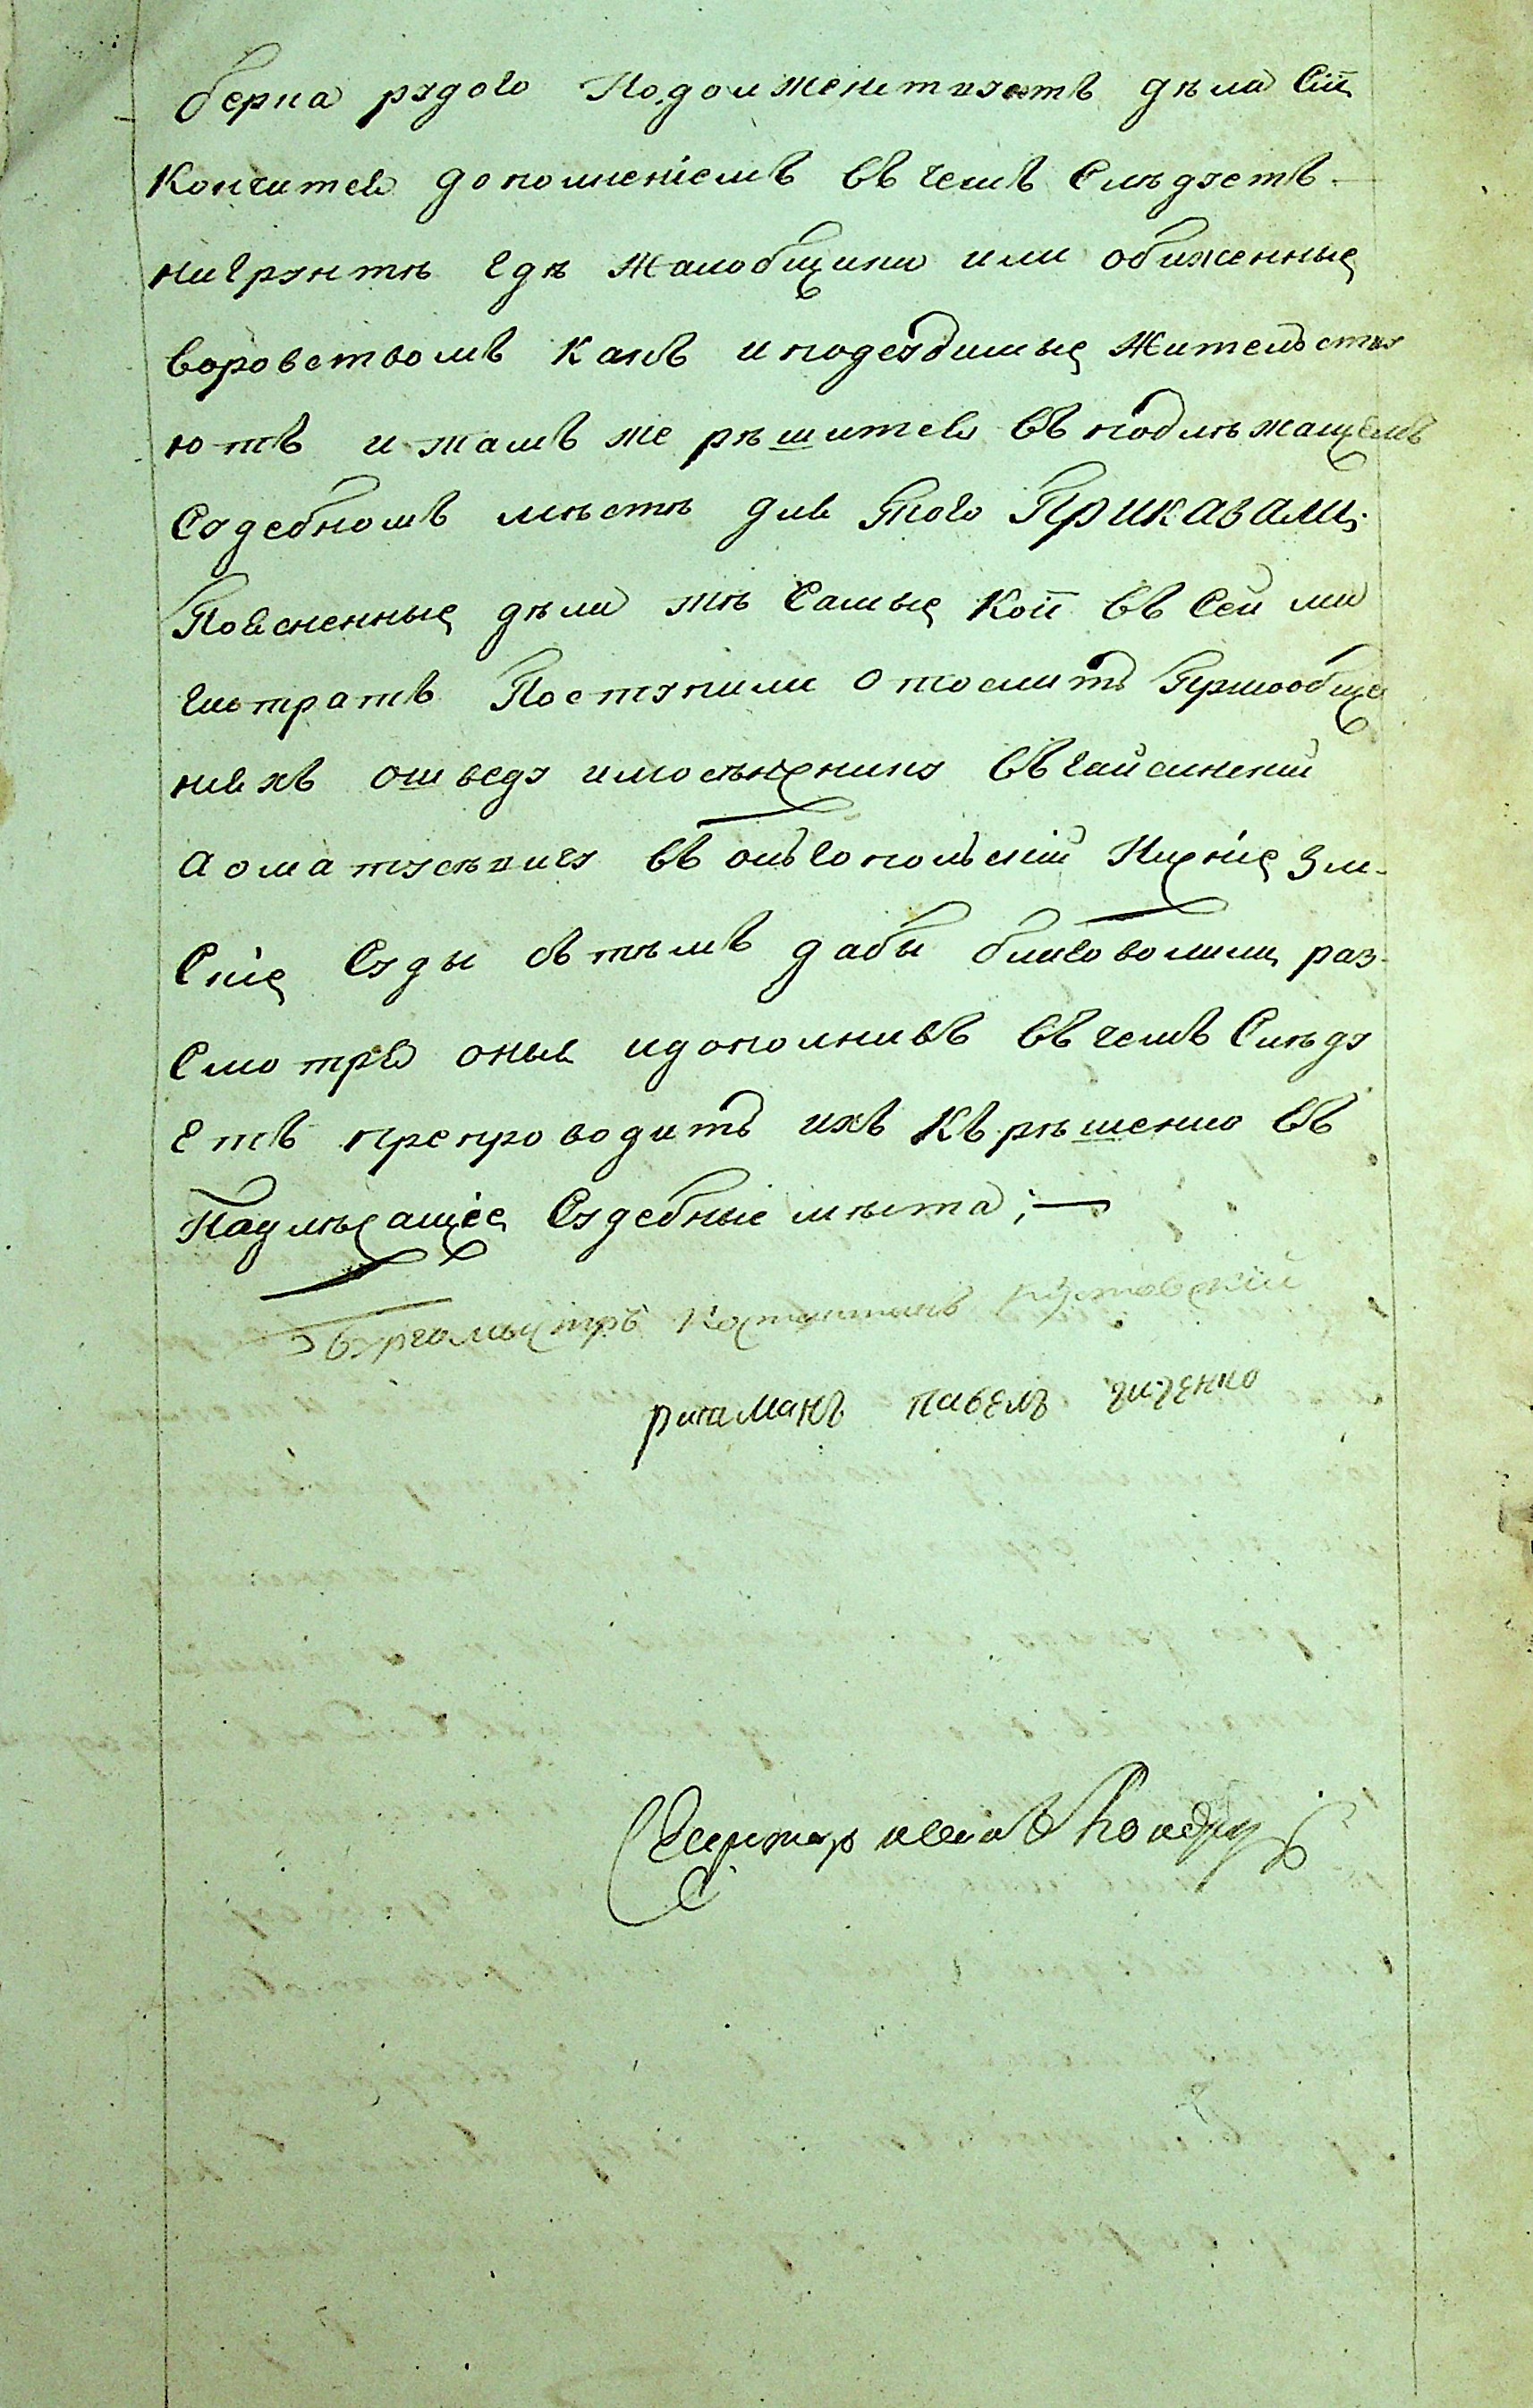 берна рудого Подолженствуютъ дѣла Сіи
Кончится дополненіемъ въ чемъ Слѣдуетъ
на Грунтѣ гдѣ Жалобщики или обиженные
воровствомъ какъ и подсудимые Жительству
ютъ и тамъ же рѣшится въ подлѣжащемъ
Судебномъ мѣстѣ для Того Приказали;
Поясненные дѣла тѣ Самые Кои въ Сей ма
гистратъ Поступили отослить Приобще
нныхъ въ гайсинскій
въ ольгополскій Нижніе Зем-
Скіе Суды сътѣмъ дабы благоволили раз-
Смотря оные идополнивъ въ чемъ Слѣду
Етъ препроводить ихъ Къ рѣшению въ
Надлѣжащіе Судебные мѣста; —
Бургамыстръ Костантинъ
ратманъ павелъ
Секретарь